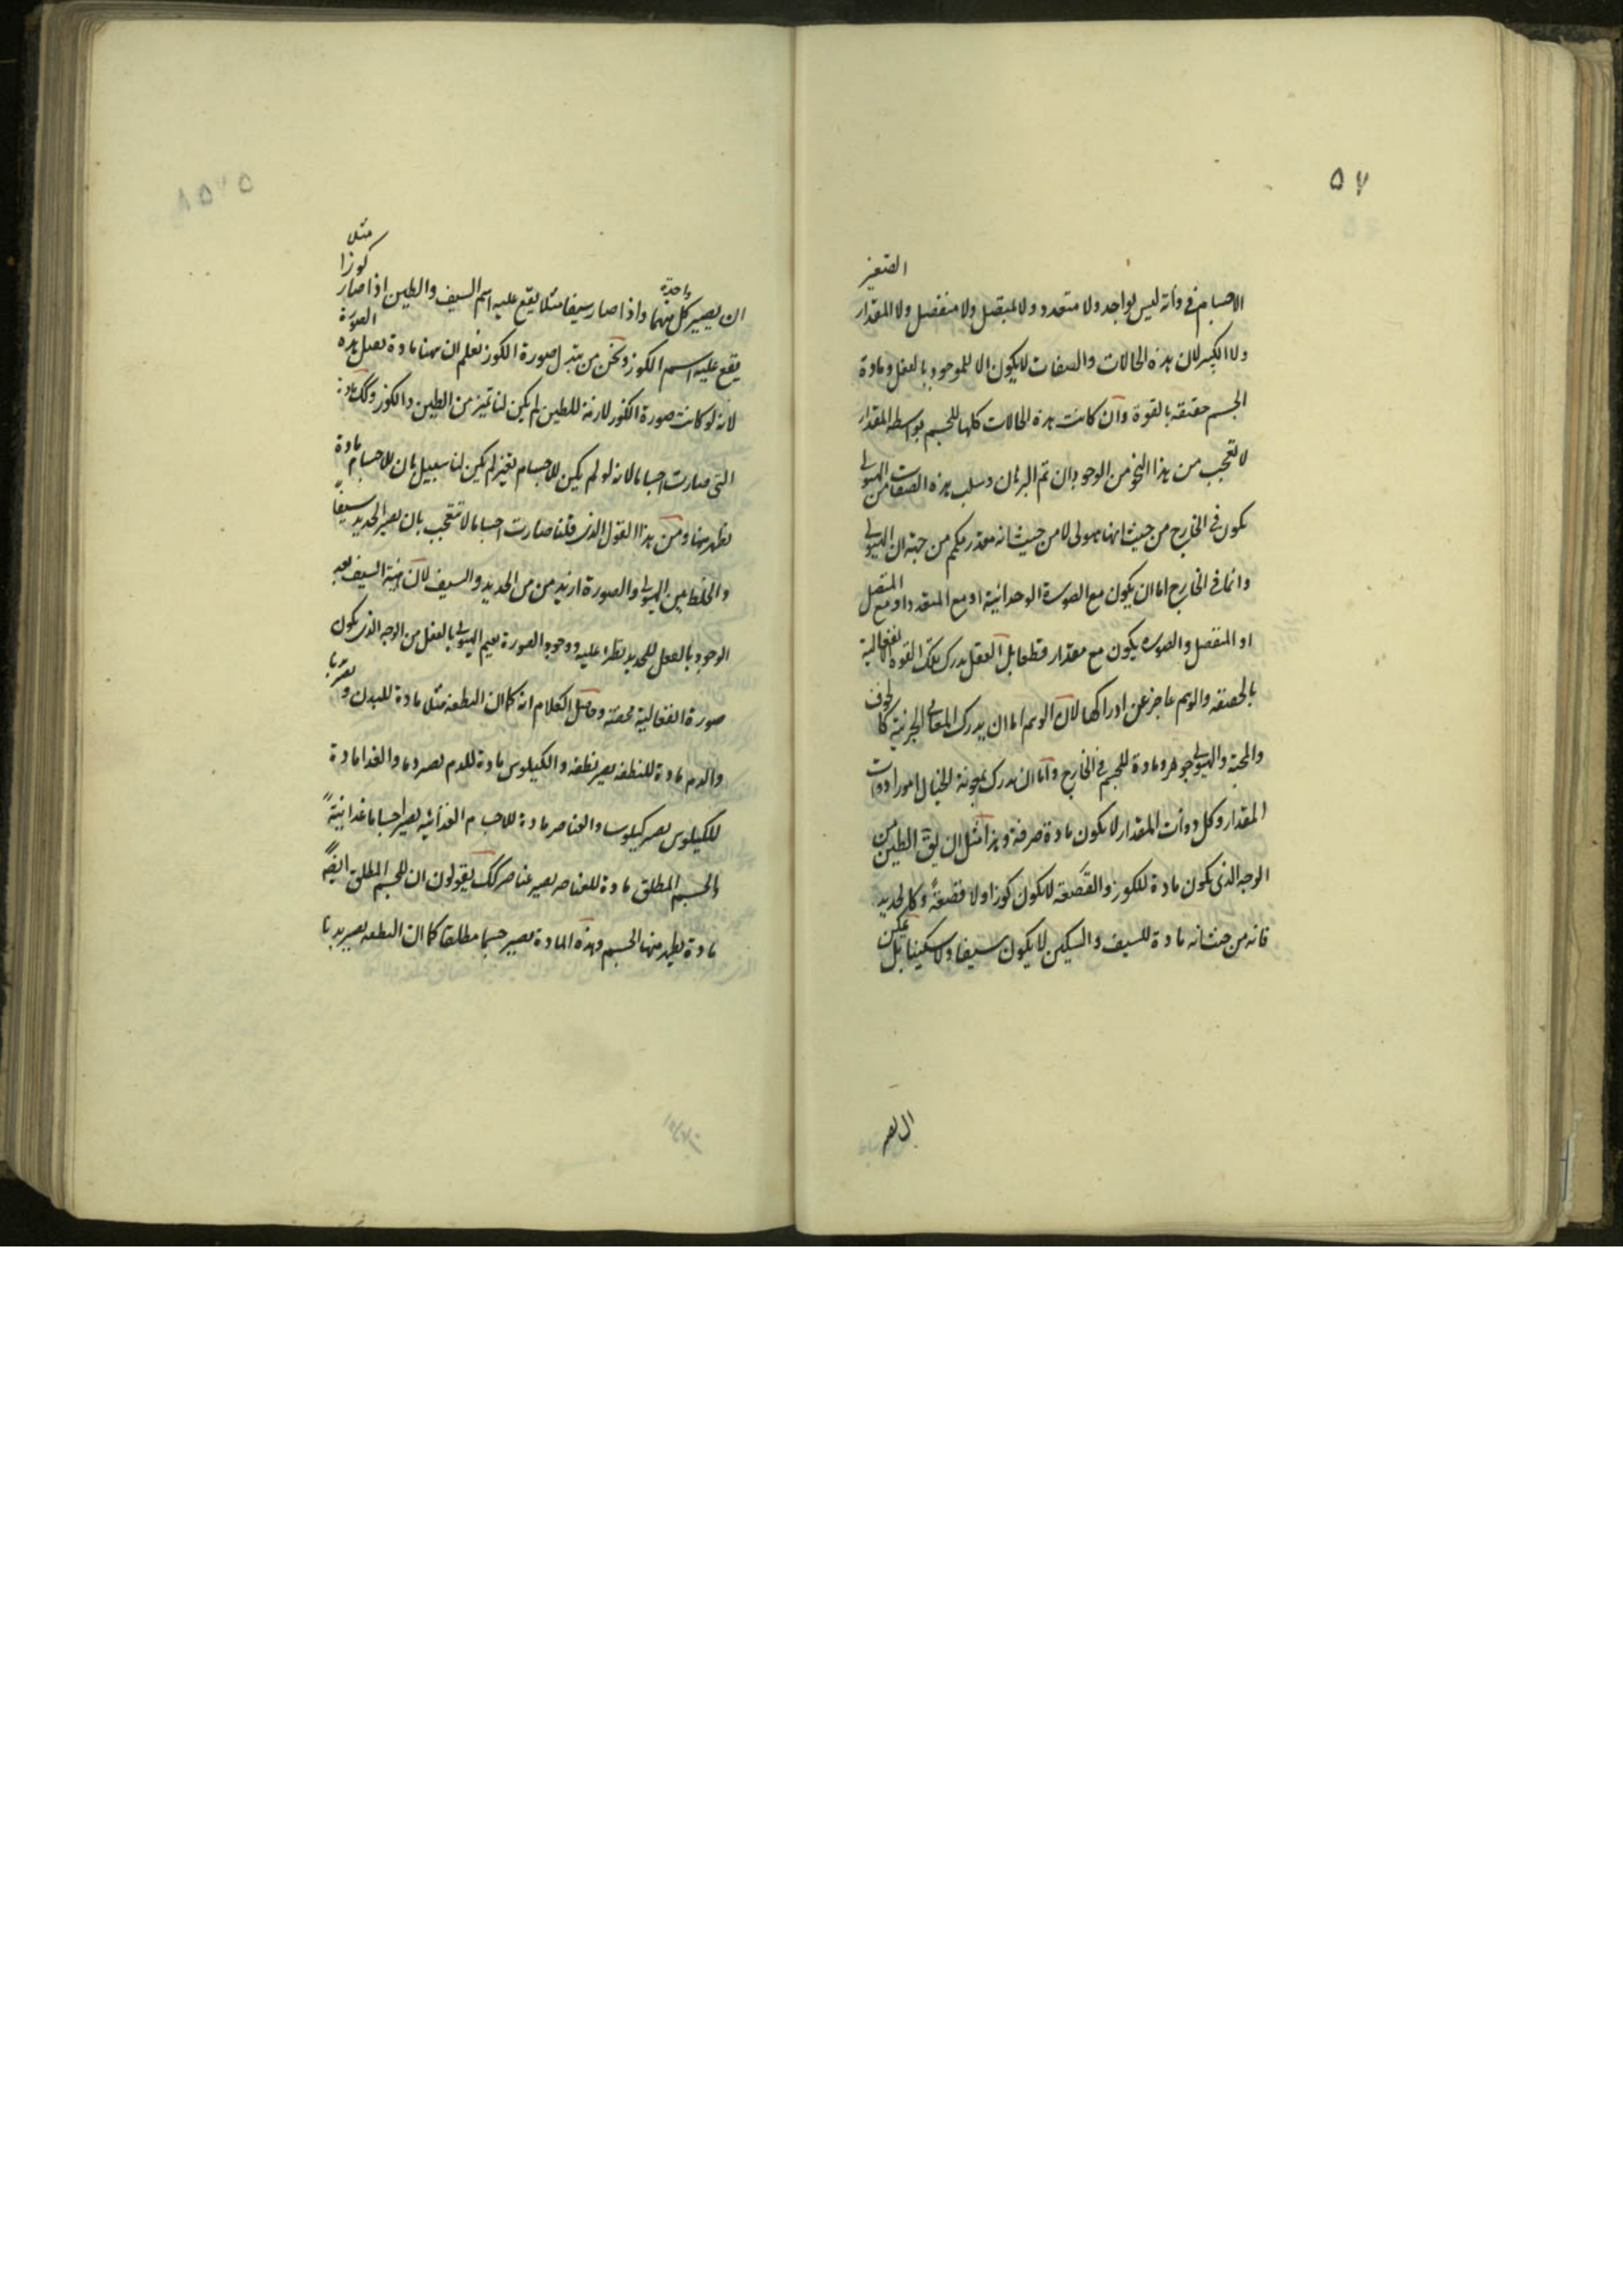 ٥٧
الاجسام فى ذاته ليس بواحد ولا متعدد ولا بمتصل ولا منفصل ولا المقدار الصغير
ولا الكبير لان هذه الحالات والصفات لا يكون الا للموجود بالفعل ومادة
الجسم حقيقه بالقوة وان كانت هذه الحالات كلها للجسم بواسطه المقدار
لا تعجب من هذا النحو من الوجود بان تم البرهان وسلب هذه الصفات من الهيولى
يكون فى الخارج من حيث انها هيولى لا من حيث انه مقدر يحكم من جهة ان الهيولى
وانما فى الخارج اما ان يكون مع الصورة الوحدانية او مع المتعدد او مع المتصل
او المنفصل والصوره يكون مع مقدار قطعا بل العقل يدرك تلك القوة انفعالية
بالحقيقه والوهم عاجز عن ادراكها لان الوهم اما ان يدرك المعانى الجزئية كالخوف
والمحبة والهيولى جوهر ومادة للجسم فى الخارج واما ان يدرك بمعونة الخيال امورا ذوات
المقدار وكل ذوات المقدار لا يكون مادة صرفة وهذا مثل ان يق الطين من
الوجه الذى يكون مادة للكوز والقصعة لا يكون كوزا ولا قصعةً وكل لحديد
فانه من حيث انه مادة للسيف والسكين لا يكون سيفا ولا سكينا بل يمكن
ان يصير
ان يصير كل منهما واحدة واذا صار سيفا مثلا يقع عليه اسم السيف والطين اذا صار كوزا مثلا
يقع عليه اسم الكوز ونحن من تبدل صورة الكوز نعلم ان هنا مادة تقبل هذه الصورة
لانه لو كانت صورة الكوز لازمة للطين لم يكن لنا تميز من الطين والكوز وكك مادة
التى صارت اجساما لانه لو لم يكن للاجسام تغير لم يكن لنا سبيل بان للاجسام مادة
تظهر منها ومن هذا القول الذى قلنا صارت اجساما لا تتعجب بان يصير الحديد سيفاً
والخلط بين الهيولى والصورة ازيد من من الحديد والسيف لان هيئة السيف بعد
الوجود بالفعل للحديد تطرء عليه ووجود الصورة يقيم الهيولى بالفعل من الوجه الذى يكون
صورة انفعالية محضة وحاصل الكلام انه كما ان النطفه مثلا مادة للبدن و يصير بدنا
والدم مادة للنطفه يصير نطفه والكيلوس مادة للدم يصير دما والغذا مادة
للكيلوس يصير كيلوسا والعناصر مادة للاجسام الغذائيه يصير اجساما غذائيةً
والجسم المطلق مادة للعناصر يصير عناصر كك يقولون ان للجسم المطلق ايضاً
مادة يظهر منها الجسم وهذه المادة يصير جسما مطلقا كما ان النطفه يصير بدنا